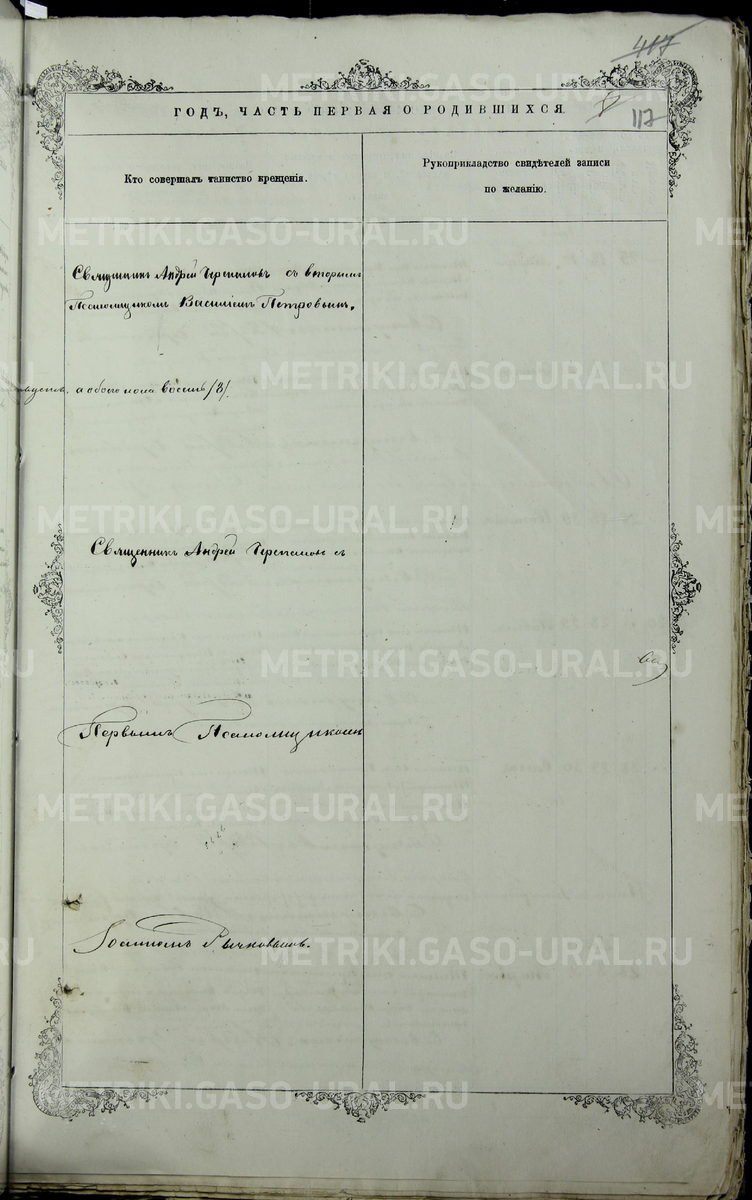 417
ГОДЪ, ЧАСТЬ ПЕРВАЯ О РОДИВШИХСЯ
117
Кто совершалъ таинство крещенія.
Рукоприкладство свидѣтелей записи
по желанію.
Священникъ Андрей съ вторымъ
Псаломщикомъ Василіемъ Петровымъ.
а обоего пола восемь /8/.
Священникъ Андрей съ
Первымъ Псаломщикомъ
Іоанномъ Рычковымъ.
METRIKI.GASO-URAL.RU